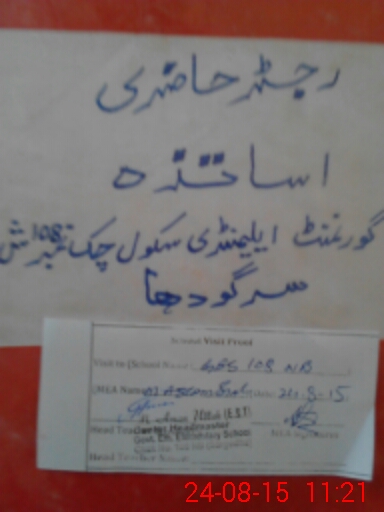 رجسٹر حاضری
اساتذہ
گورنمنٹ ایلیمنٹری سکول چک نمبر 108 ش
سرگودھا
School Visit Proof
Visit to (School Name) GES 108 NB
(MEA Name) Date: 24.8-15
Head Teacher
Headmaster
Govt. Elementary School
Head Teacher Name
24-08-15 11:21